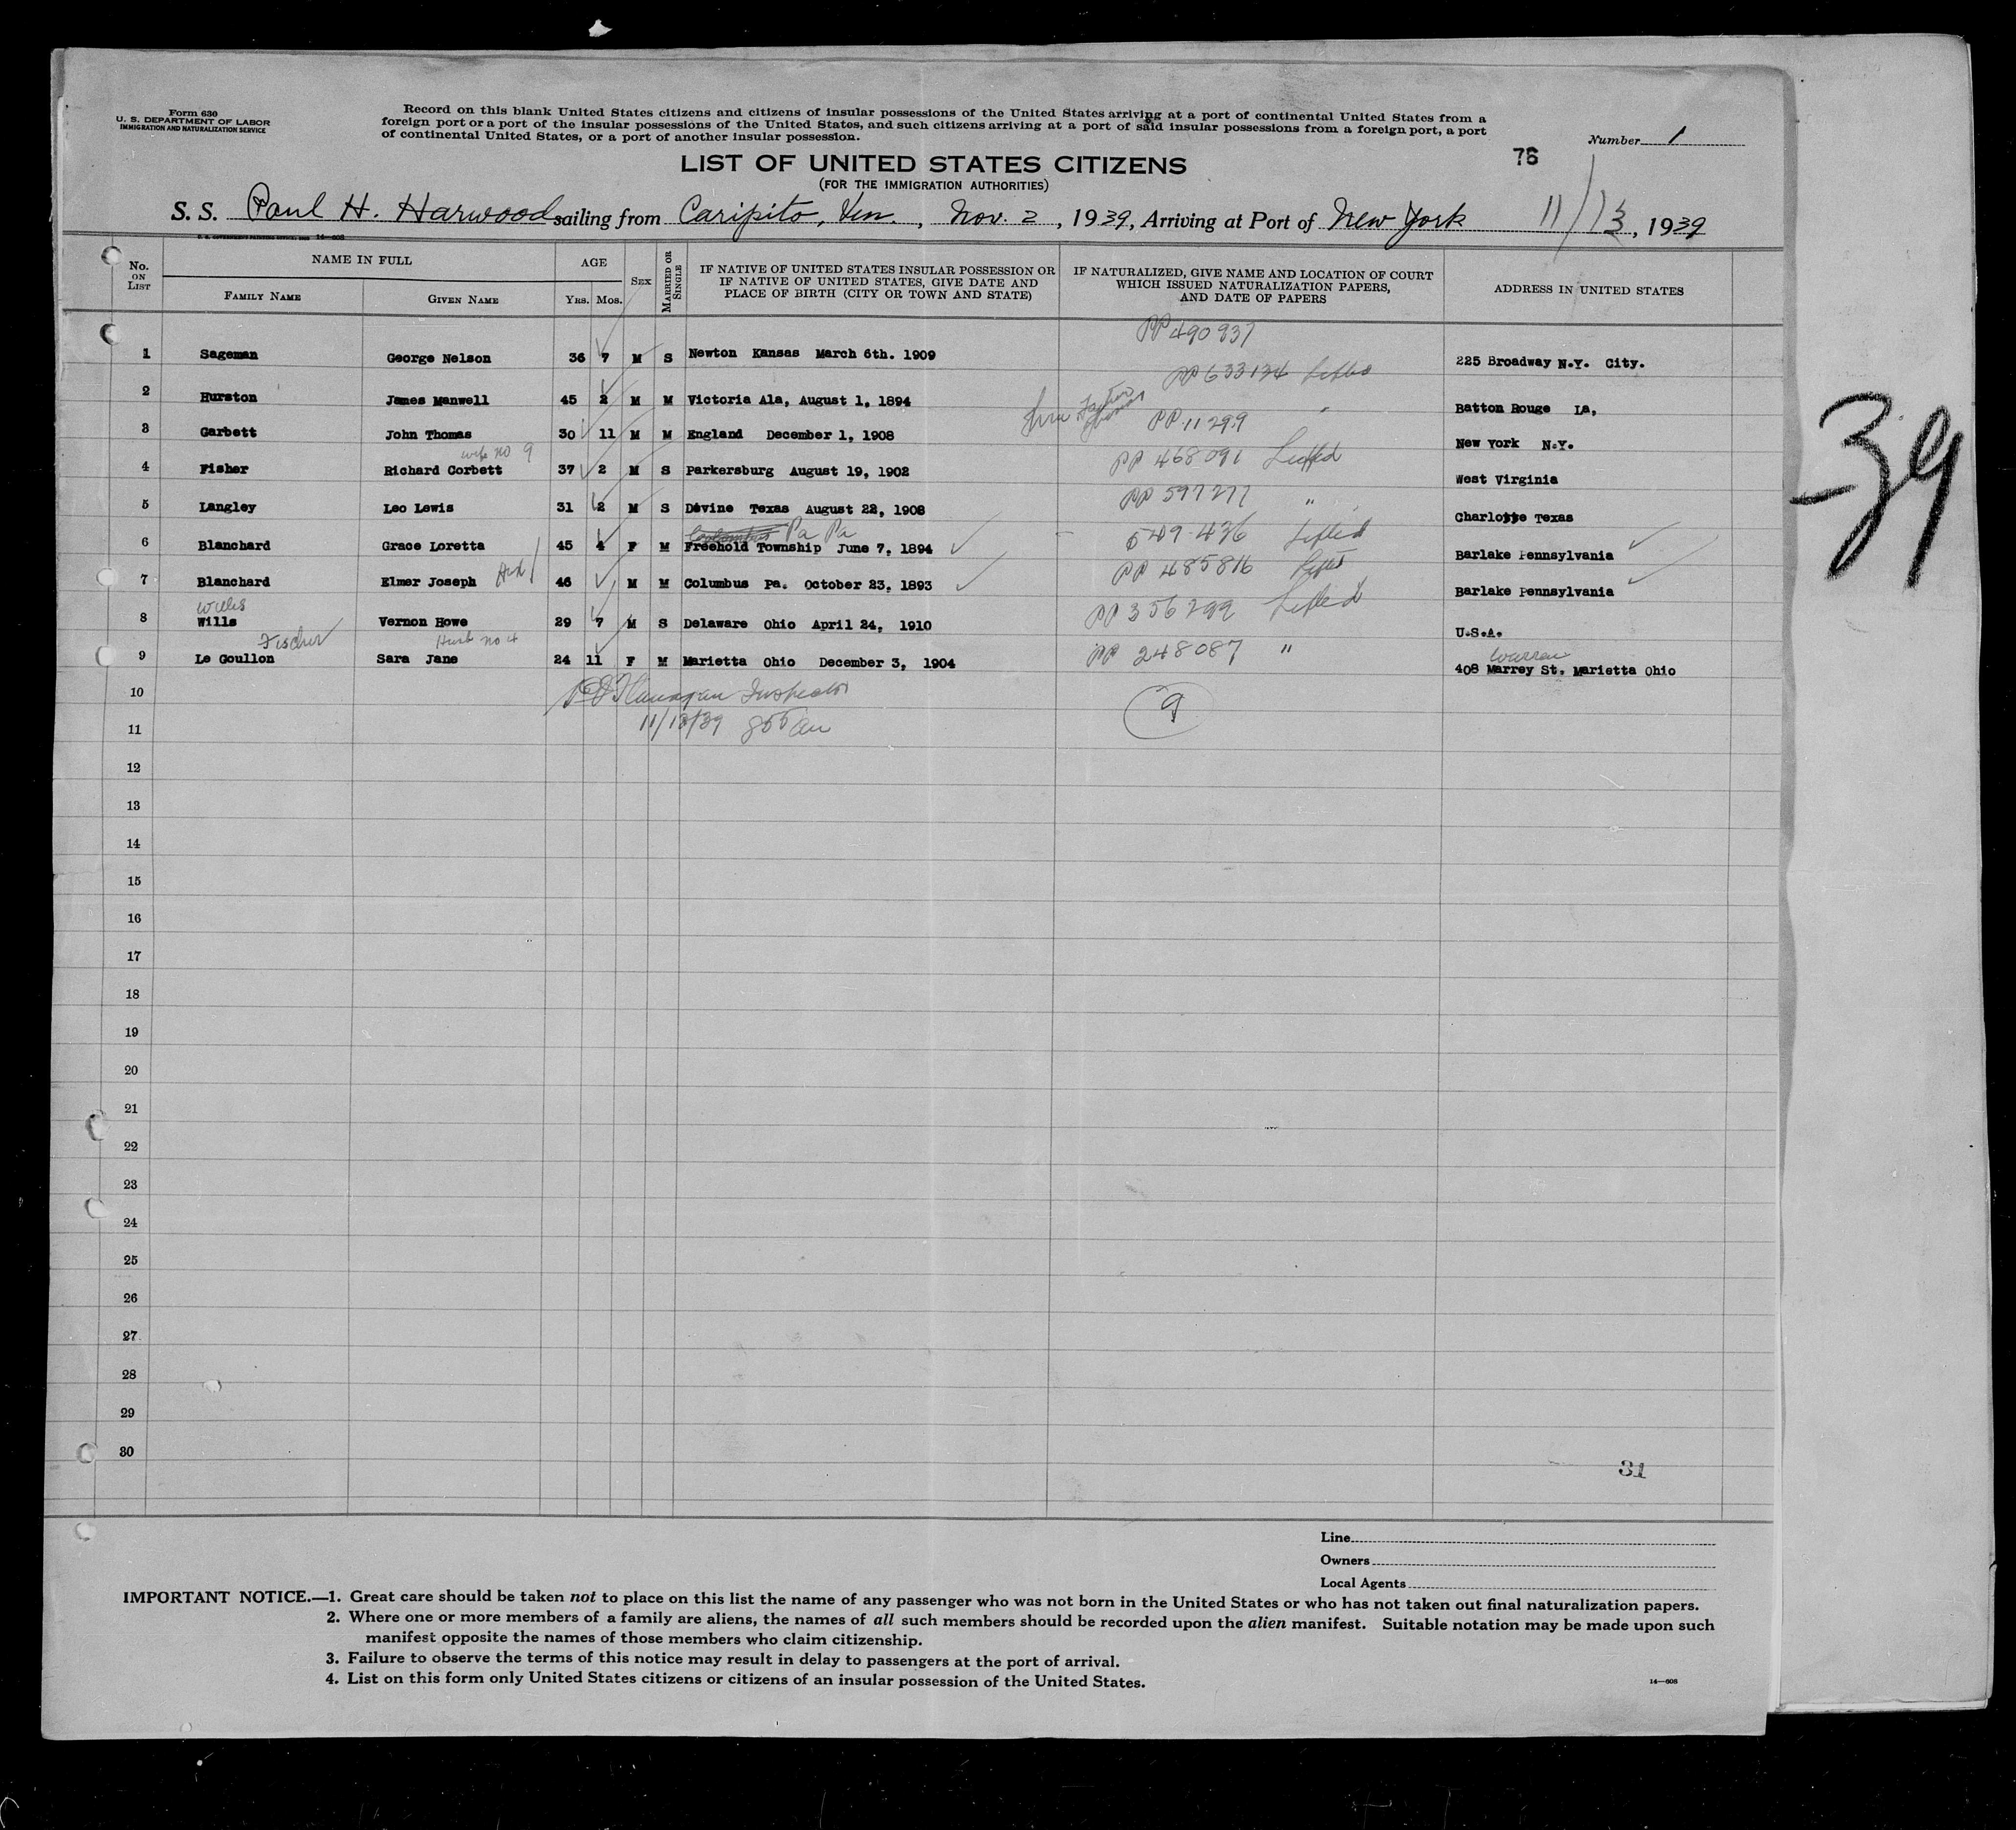 Form 630
U. S. DEPARTMENT OF LABOR
IMMIGRATION AND NATURALIZATION SERVICE
Record on this blank United States citizens and citizens of insular possessions of the United States arriving at a port of continental United States from a
foreign port or a port of the insular possessions of the United States, and such citizens arriving at a port of said insular possessions from a foreign port, a port
of continental United States, or a port of another insular possession.
Number 1
76
LIST OF UNITED STATES CITIZENS
(FOR THE IMMIGRATION AUTHORITIES)
S. S. Paul H. Harwood sailing from Caripito, Ven., Nov. 2, 1939, Arriving at Port of New York 11/13, 1939
No. ON LIST
NAME IN FULL
FAMILY NAME
GIVEN NAME
AGE
YRS. MOS.
SEX
MARRIED OR SINGLE
IF NATIVE OF UNITED STATES INSULAR POSSESSION OR
IF NATIVE OF UNITED STATES, GIVE DATE AND
PLACE OF BIRTH (CITY OR TOWN AND STATE)
IF NATURALIZED, GIVE NAME AND LOCATION OF COURT
WHICH ISSUED NATURALIZATION PAPERS,
AND DATE OF PAPERS
ADDRESS IN UNITED STATES
PP 490937
1 Sageman George Nelson 36 7 M S Newton Kansas March 6th. 1909 225 Broadway N.Y. City.
PP 633134 Lifted
2 Hurston James Manwell 45 2 M M Victoria Ala, August 1, 1894 Batton Rouge La,
PP 11299 "
3 Garbett John Thomas 30 11 M M England December 1, 1908 New York N.Y.
wife no 9
PP 468091 Lifted
4 Fisher Richard Corbett 37 2 M S Parkersburg August 19, 1902 West Virginia
PP 597277 "
5 Langley Leo Lewis 31 2 M S Devine Texas August 22, 1908 Charlotte Texas
Columbus Pa Pa
549436 Lifted
6 Blanchard Grace Loretta 45 4 F M Freehold Township June 7, 1894 Barlake Pennsylvania
PP 485816 Lifted
7 Blanchard Elmer Joseph 46 M M Columbus Pa. October 23, 1893 Barlake Pennsylvania
PP 356299 Lifted
8 Wills Vernon Howe 29 7 M S Delaware Ohio April 24, 1910 U.S.A.
Fischer Husb no 4
PP 248087 "
Warren
9 Le Goullon Sara Jane 24 11 F M Marietta Ohio December 3, 1904 408 Marrey St. Marietta Ohio
10
Flanagan Inspector
9
11
11/13/39 855 am
12
13
14
15
16
17
18
19
20
21
22
23
24
25
26
27
28
29
30
31
39
Line
Owners
Local Agents
IMPORTANT NOTICE.—1. Great care should be taken not to place on this list the name of any passenger who was not born in the United States or who has not taken out final naturalization papers.
2. Where one or more members of a family are aliens, the names of all such members should be recorded upon the alien manifest. Suitable notation may be made upon such
manifest opposite the names of those members who claim citizenship.
3. Failure to observe the terms of this notice may result in delay to passengers at the port of arrival.
4. List on this form only United States citizens or citizens of an insular possession of the United States.
14—608